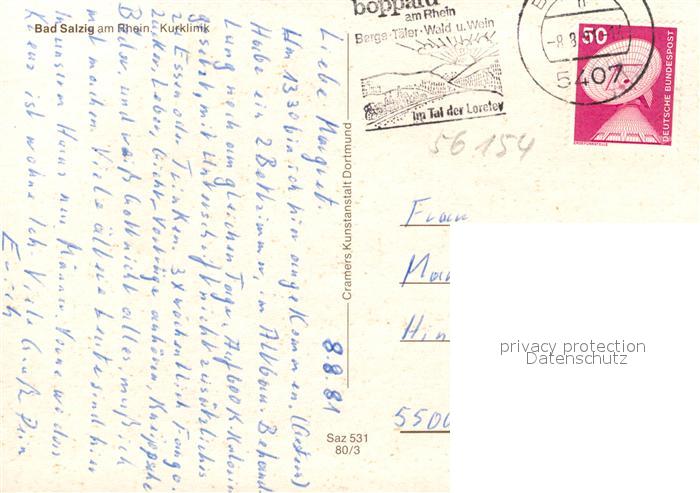 Bad Salzig am Rhein, Kurklinik
boppard
am Rhein
Berge·Täler·Wald u. Wein
Im Tal der Loreley
-8.8.
5407
50
DEUTSCHE BUNDESPOST
56 154
Cramers Kunstanstalt Dortmund
Saz 531
80/3
8.8.81
Liebe Margret.
Um 13.30 bin ich hier angekommen. (Gestern)
Habe ein 2 Bettzimmer, im Altbau. Behand
lung noch am gleichen Tage. Auf 600 K. Kalorien
gesetzt, mit Unterschrift nicht zusätzliches
z. Essen oder Trinken. 3 x wöchentlich Fango.
Leber, Licht-Vorträge anhören, Kneippsche
Bäder, und weiß Gott nicht alles, muß ich
mitmachen. Viele ältere Leute sind hier
In unserem Haus nur Männer. Vorne wo das
Kreuz ist wohne ich. Viele Grüße Dein
Erich
Frau
Hin
5500
privacy protection
Datenschutz